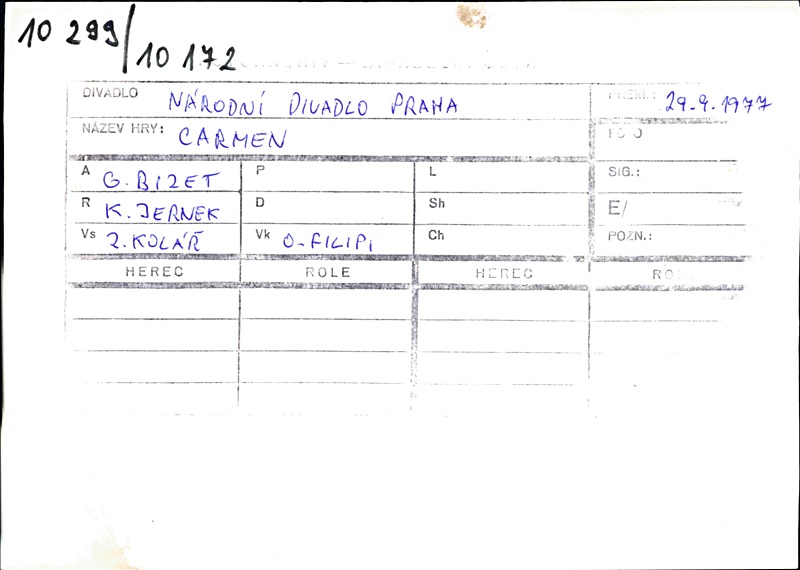 10 299/10 172
DIVADLO NÁRODNÍ DIVADLO PRAHA PREM.: 29.9.1977
NÁZEV HRY: CARMEN FOTO
A G. BIZET P L SIG.:
R K. JERNEK D Sh E/
Vs Z. KOLÁŘ Vk O. FILIPI Ch POZN.:
HEREC ROLE HEREC ROLE